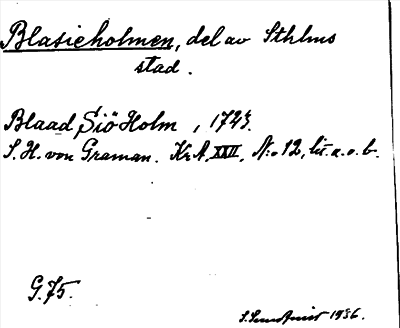 Blasieholmen, del av Sthlms
stad.
Blaad Siö Holm, 1723.
S. H. von Graman. Kr A, XXII, N:o 12, lit. a. o. b.
G. 75.
1936.